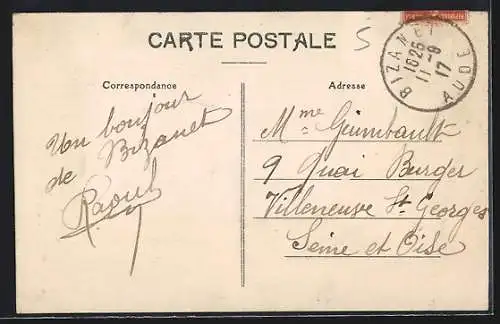 CARTE POSTALE
5
BIZANET
1626
11-9
17
AUDE
Correspondance
Adresse
Un bonjour
de Bizanet
Raoul
Mme Guimbault
9 Quai Burger
Villeneuve St Georges
Seine et Oise